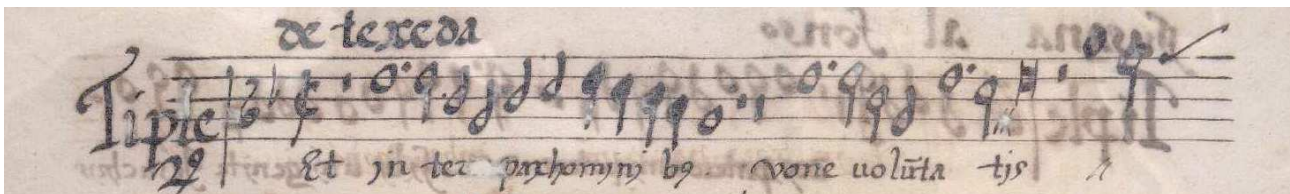 de texeda
Tiple
29 Et in ter pax homini bꝰ vone uolūta tis